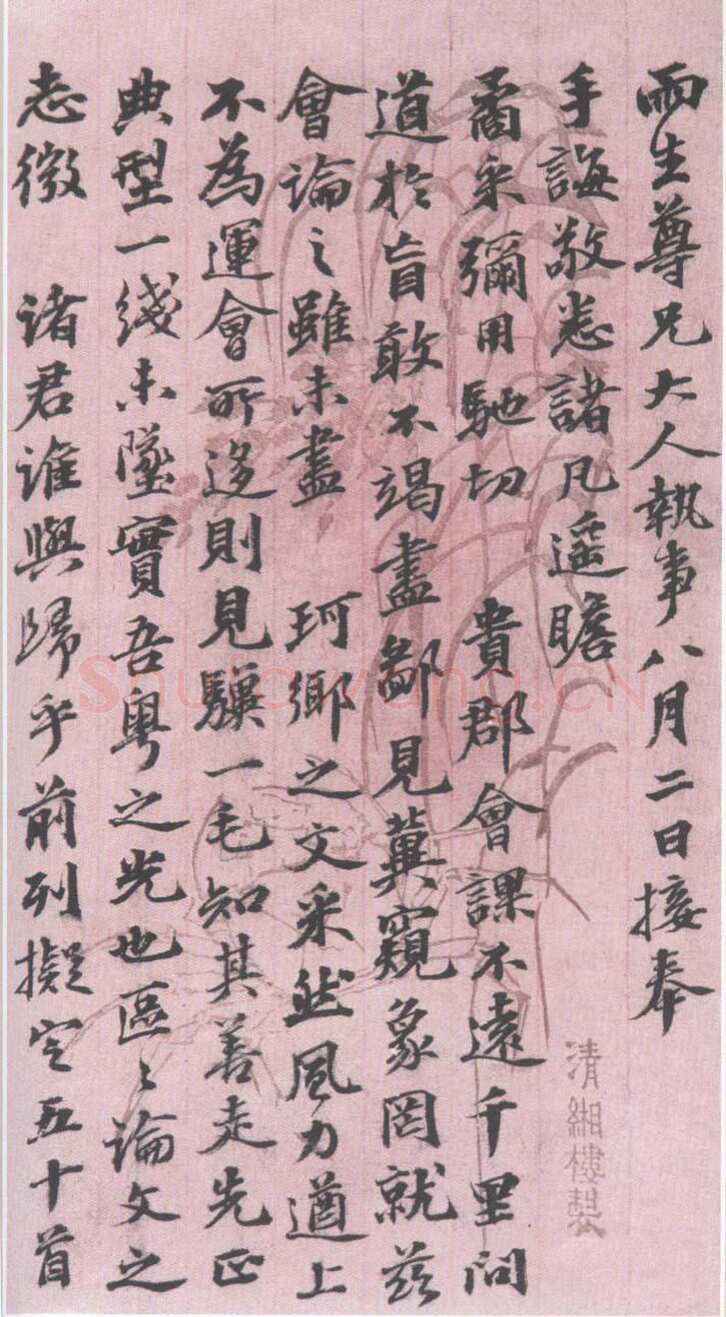 雨生尊兄大人執事八月二日接奉
手誨敬悉諸凡遥瞻
矞采彌用馳切 貴郡會課不遠千里問
道於盲敢不竭盡鄙見冀窺象罔就兹
會論之雖未盡 珂鄉之文采然風力遒上
不為運會所迻則見驥一毛知其善走先正
典型一綫未墜實吾粵之光也區〻論文之
志微 诸君谁與歸乎前列擬定五十首
清緗樓製
Shuge.cn